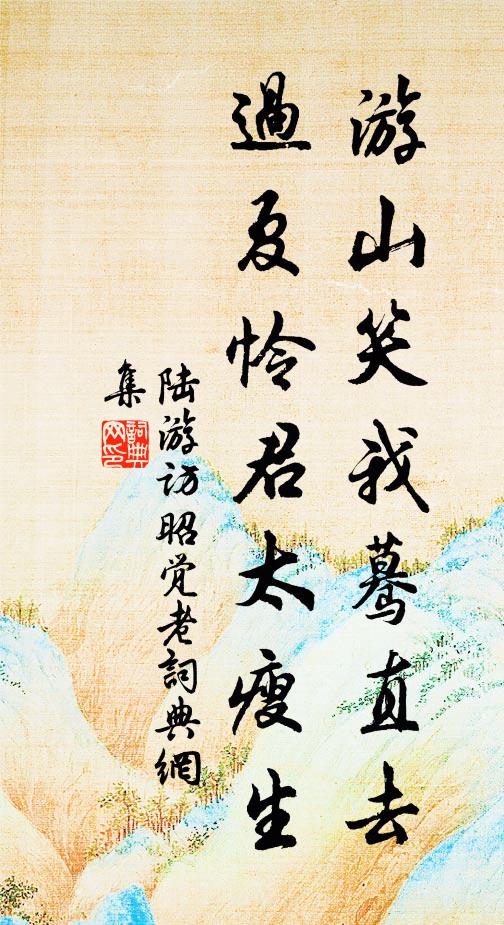 游山笑我蓦直去
過夏怜君太瘦生
陆游访昭觉老詞典網
集
詞典
网印